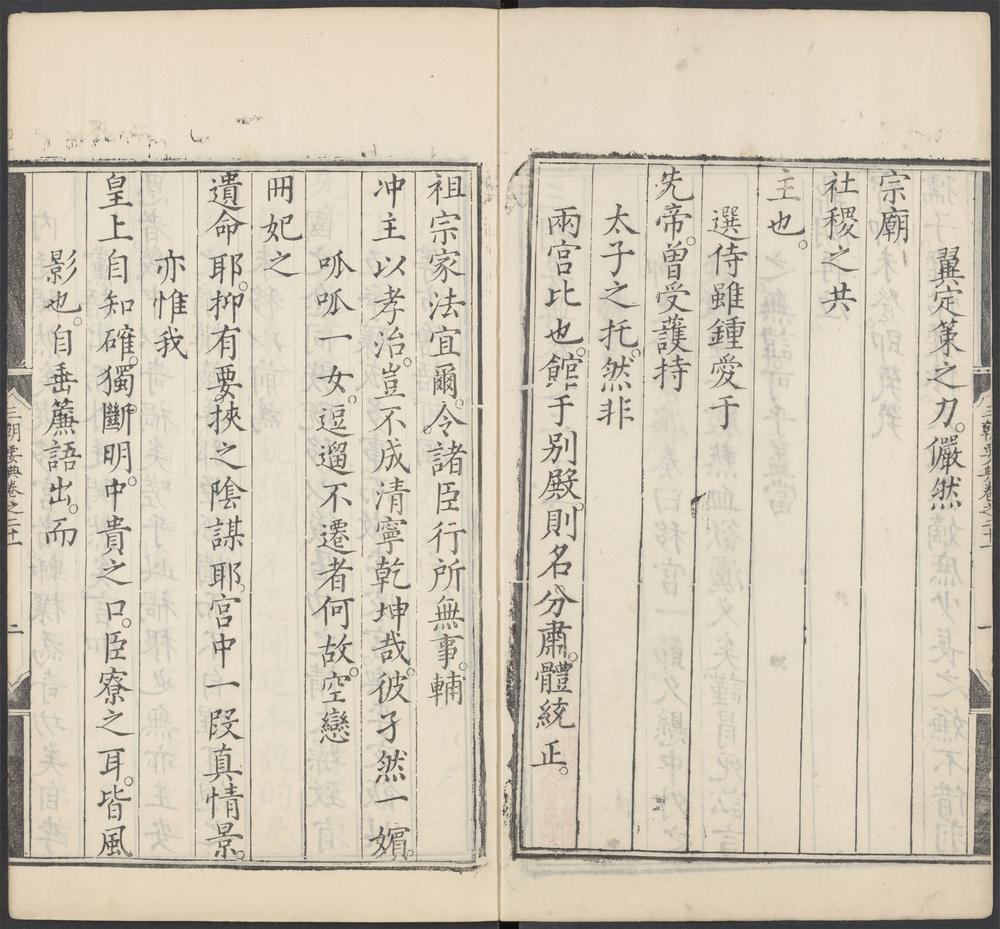 三朝要典卷之二十一
一
翼定策之力。儼然
宗廟
社稷之共
主也。
選侍雖鍾愛于
先帝。曾受護持
太子之托。然非
兩宮比也。館于別殿。則名分肅。體統正。
祖宗家法宜爾。令諸臣行所無事。輔
冲主以孝治。豈不成清寧乾坤哉。彼孑然一嬪。
呱呱一女。逗遛不遷者何故。空戀
冊妃之
遺命耶。抑有要挾之陰謀耶。宮中一段真情景。
亦惟我
皇上自知確。獨斷明。中貴之口。臣寮之耳。皆風
影也。自垂簾語出。而
三朝要典卷之二十一
二